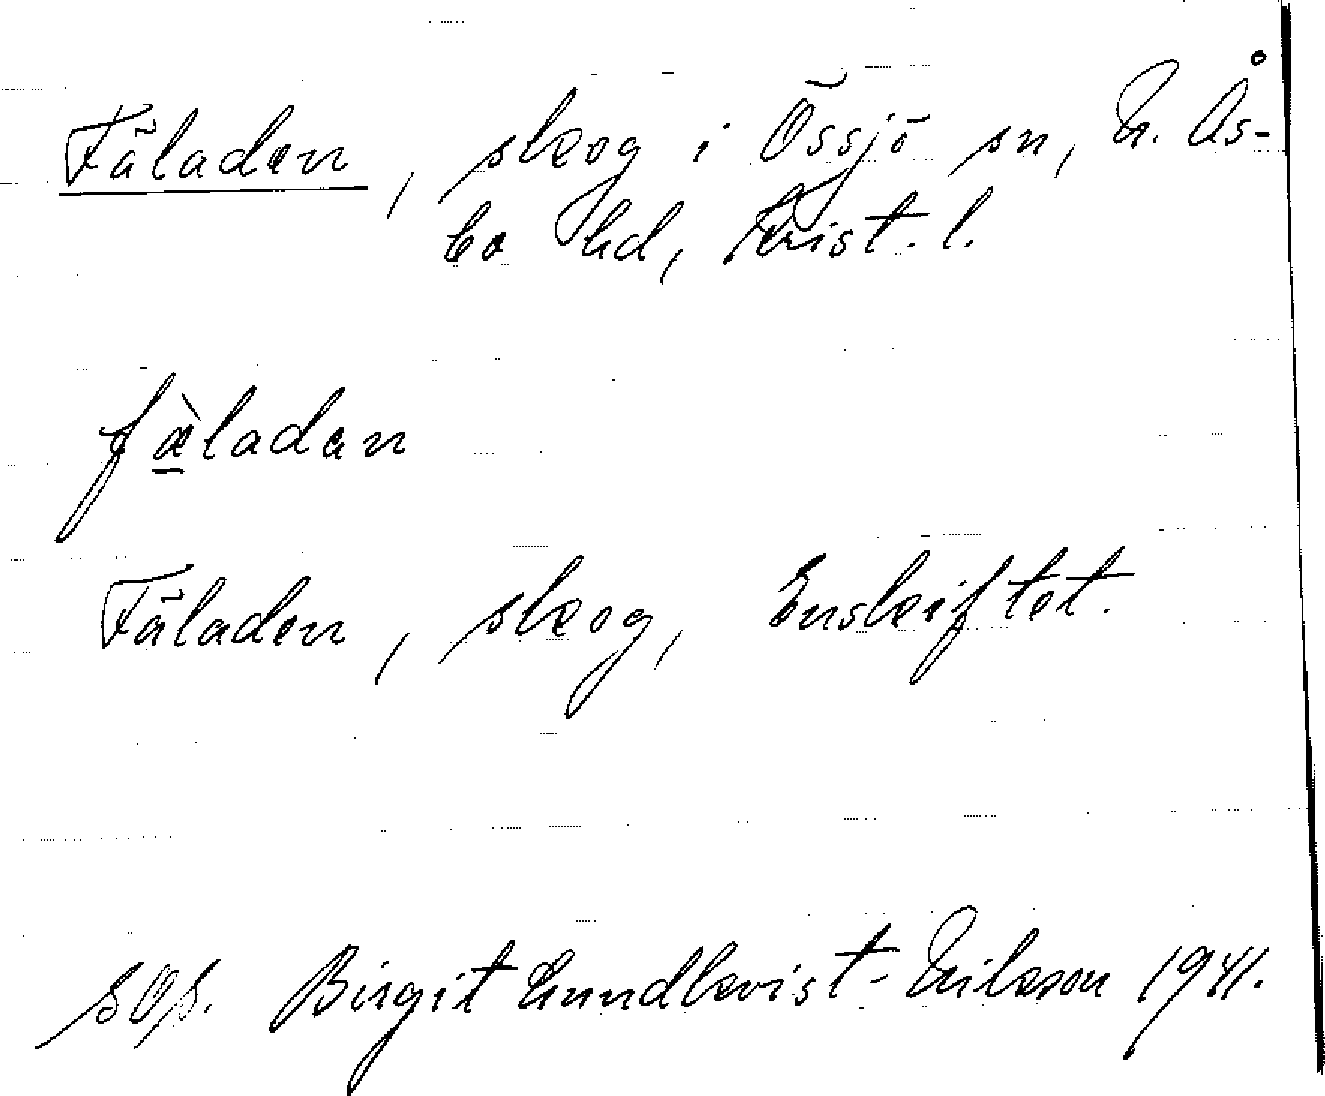 Fäladen, skog i Össjö sn, N. Ås-
bo hd, Krist. l.
fæ̀ladan
Fäladen, skog, Enskiftet.
Birgit Lundkvist-Nilsson 1941.